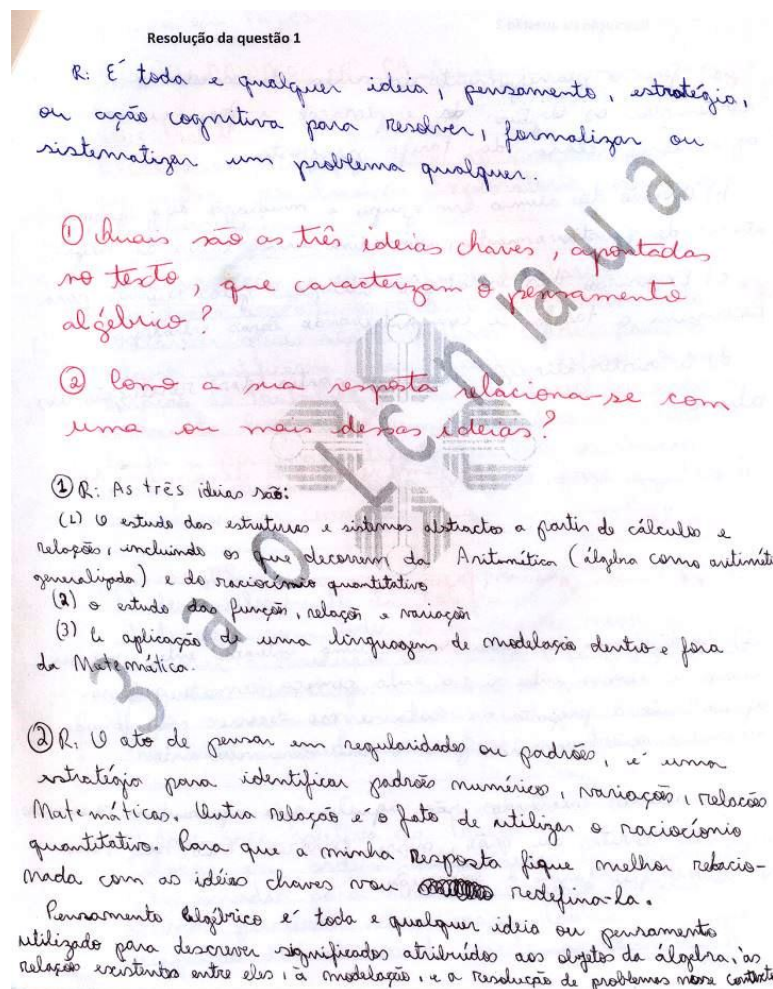 Resolução da questão 1
R: É toda e qualquer ideia, pensamento, estratégia,
ou ação cognitiva para resolver, formalizar ou
sistematizar um problema qualquer.
① Quais são as três ideias chaves, apontadas
no texto, que caracterizam o pensamento
algébrico?
② Como a sua resposta relaciona-se com
uma ou mais dessas ideias?
① R: As três ideias são:
(1) O estudo das estruturas e sistemas abstractos a partir de cálculos e
relações, incluindo os que decorrem da Aritmética (álgebra como aritméti
generalizada) e do raciocínio quantitativo
(2) o estudo das função, relações e variação
(3) A aplicação de uma linguagem de modelação dentro e fora
da Matemática.
② R: O ato de pensar em regularidades ou padrões, é uma
estratégia para identificar padrões numéricos, variações, relações
Matemáticas. Outra relação é o fato de utilizar o raciocíonio
quantitativo. Para que a minha Resposta fique melhor relacio-
nada com as idéias chaves vou redefina-la.
Pensamento Algébrico é toda e qualquer ideia ou pensamento
utilizado para descrever significados atribuídos aos objetos da álgebra, às
relações existentes entre eles, à modelação, e a resolução de problemas nesse contexto